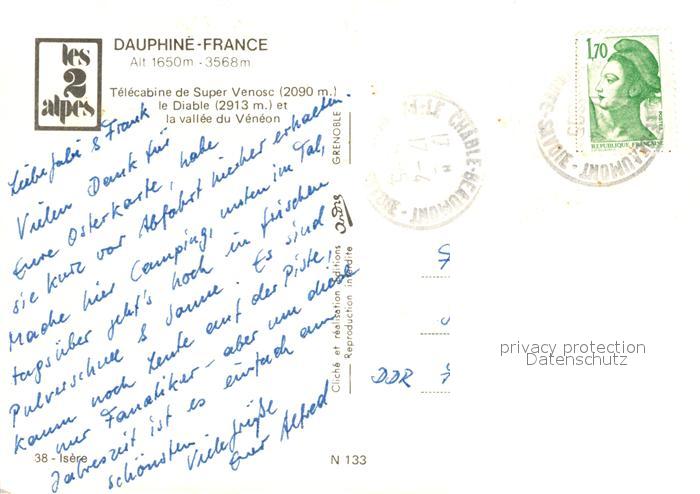 les
2
alpes
DAUPHINÉ-FRANCE
Alt 1650m - 3568m
Télécabine de Super Venosc (2090 m.)
le Diable (2913 m.) et
la vallée du Vénéon
Liebe Gabi & Frank
Vielen Dank für
Eure Osterkarte, habe
sie kurz vor Abfahrt hierher erhalten.
Mache hier Camping, unten im Tal,
tagsüber geht's hoch in frischen
Pulverschnee & Sonne. Es sind
kaum noch Leute auf der Piste,
nur Fanatiker - aber um diese
Jahreszeit ist es einfach am
schönsten. Viele Grüße
Euer Alfred
38 - Isère
N 133
GRENOBLE
Cliché et réalisation éditions
Reproduction interdite
LE CHABLE-BEAUMONT
17 - 4
1,70
POSTES
REPUBLIQUE FRANÇAISE
DDR
privacy protection
Datenschutz